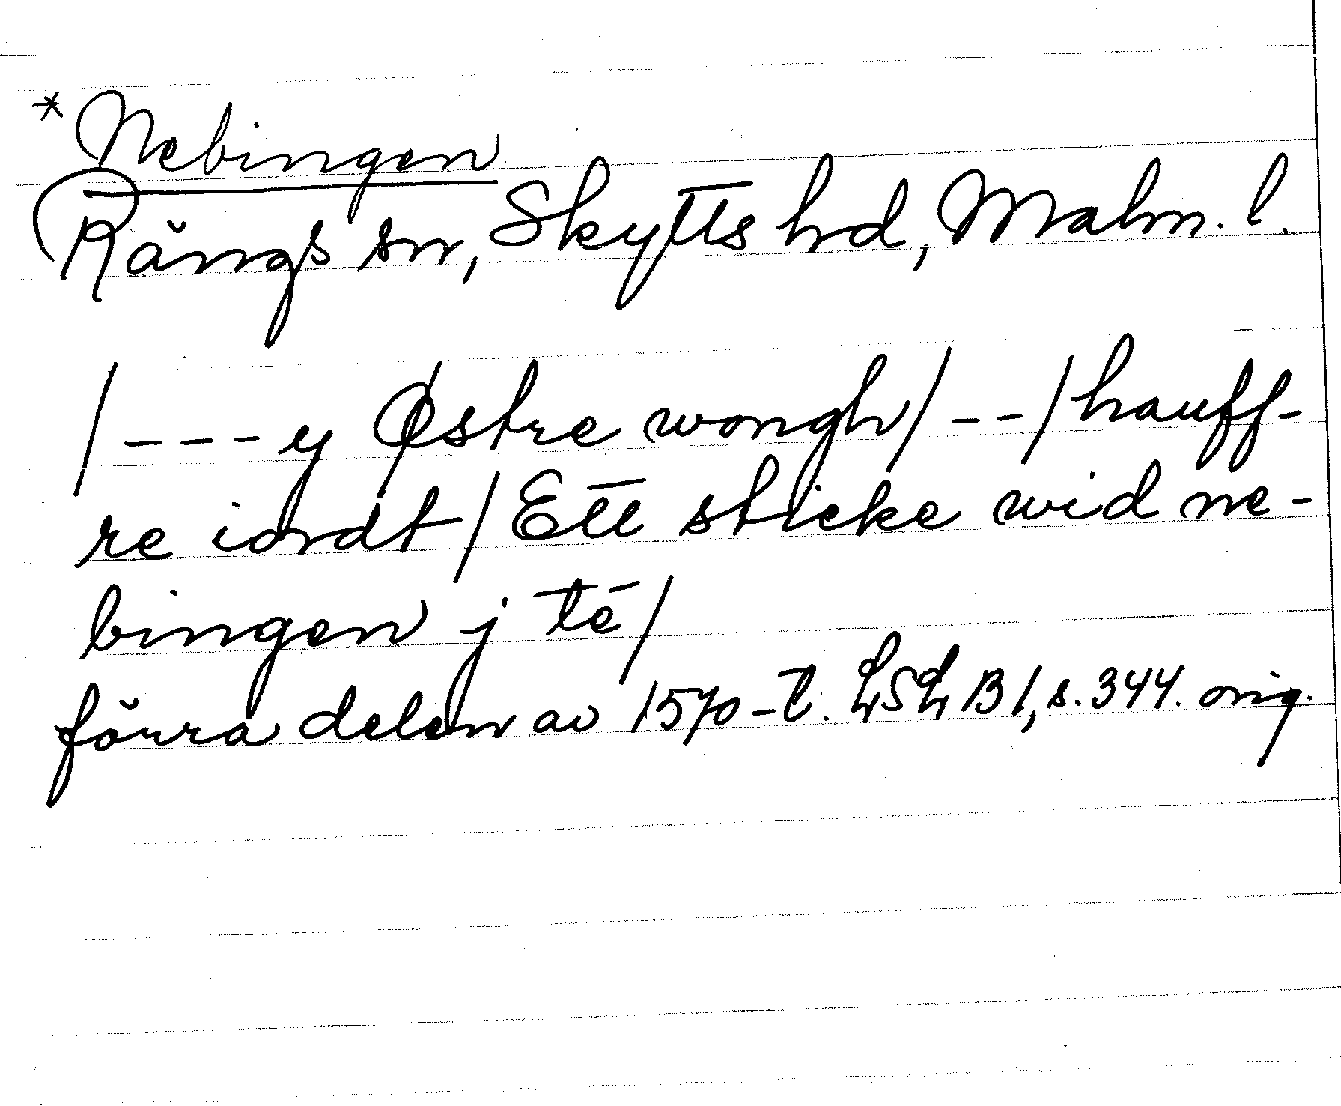 *Nebingen
Rängs sn, Skytts hd, Malm. l.
/---y Østre wongh/--/hauff-
re iordt/Ett sticke wid ne-
bingen j té/
förra delen av 1570-t. LSLB1, s. 344. orig.